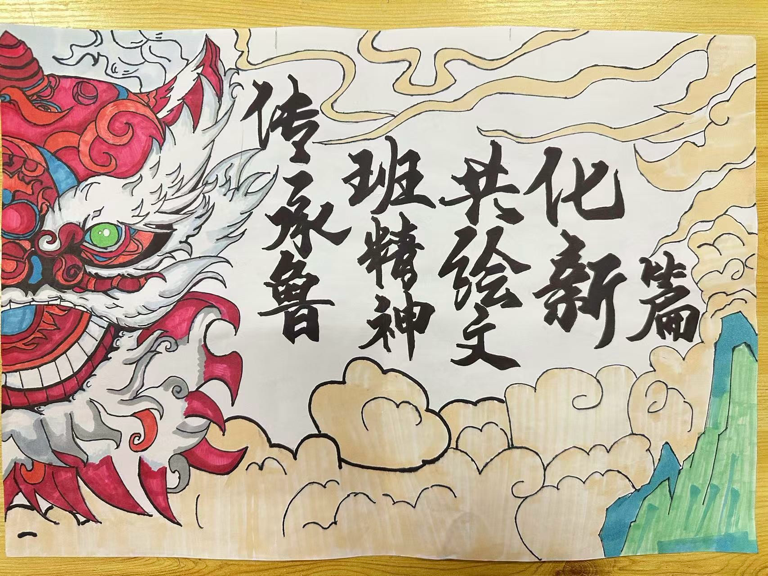 传承鲁
班精神
共绘文
化新
篇